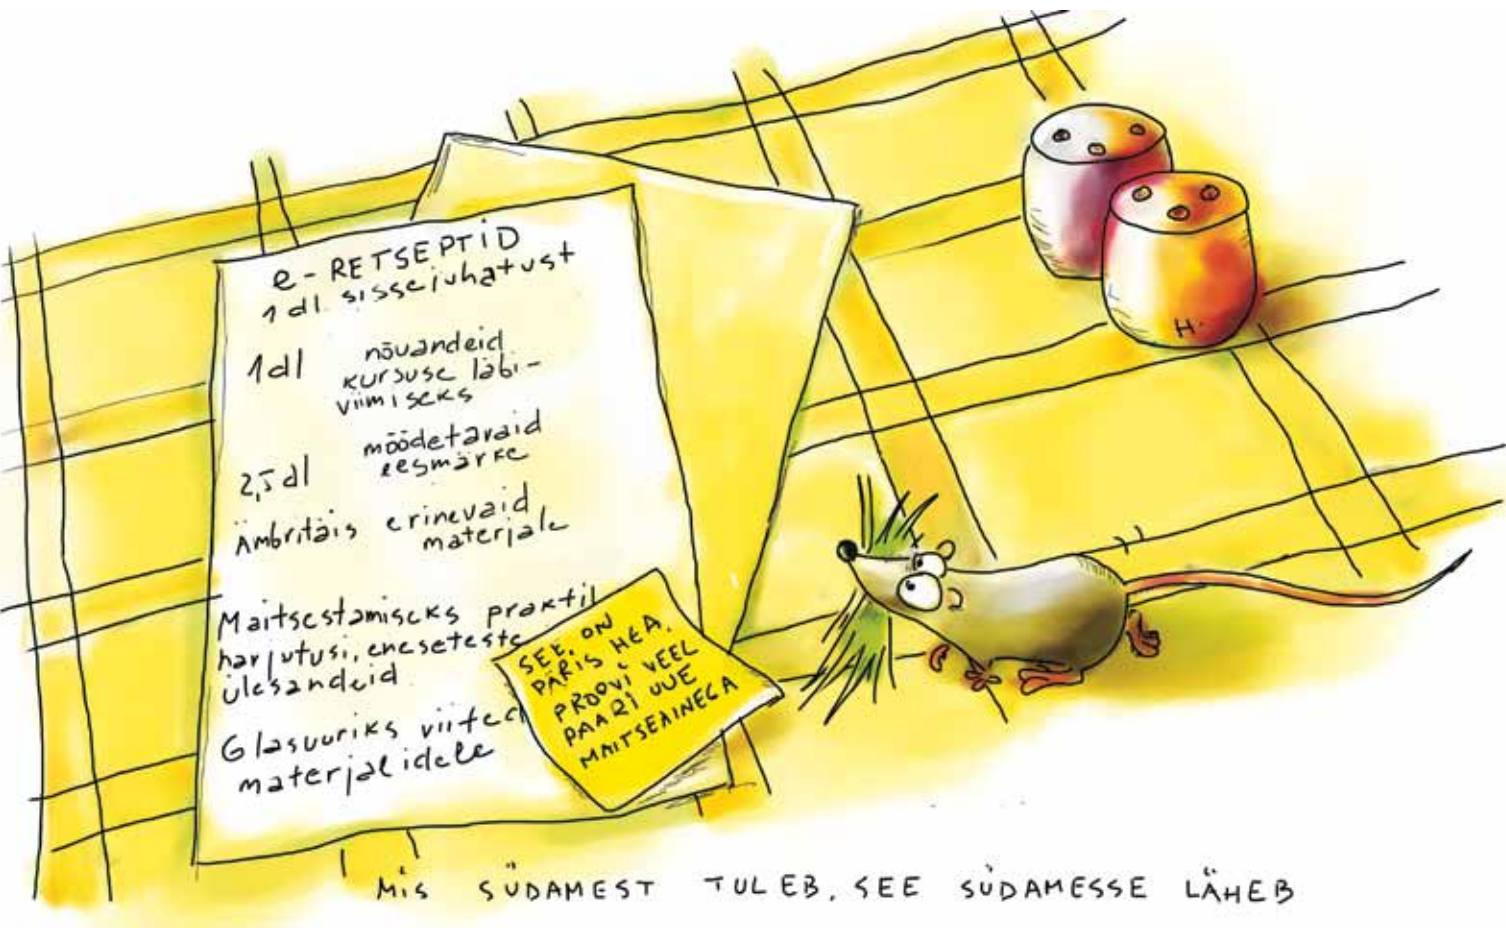 e-RETSEPTID
1 dl. sissejuhatust
1 dl nõuandeid
kursuse läbi-
viimiseks
2,5 dl möödetavaid
eesmärke
Ämbritäis erinevaid
materjale
Maitsestamiseks praktil
harjutusi, eneseteste
ülesandeid
Glasuuriks viited
materjalidele
SEE ON
PÄRIS HEA.
PROOVI VEEL
PAARI UUE
MAITSEAINEGA
H.
MIS SÜDAMEST TULEB, SEE SÜDAMESSE LÄHEB